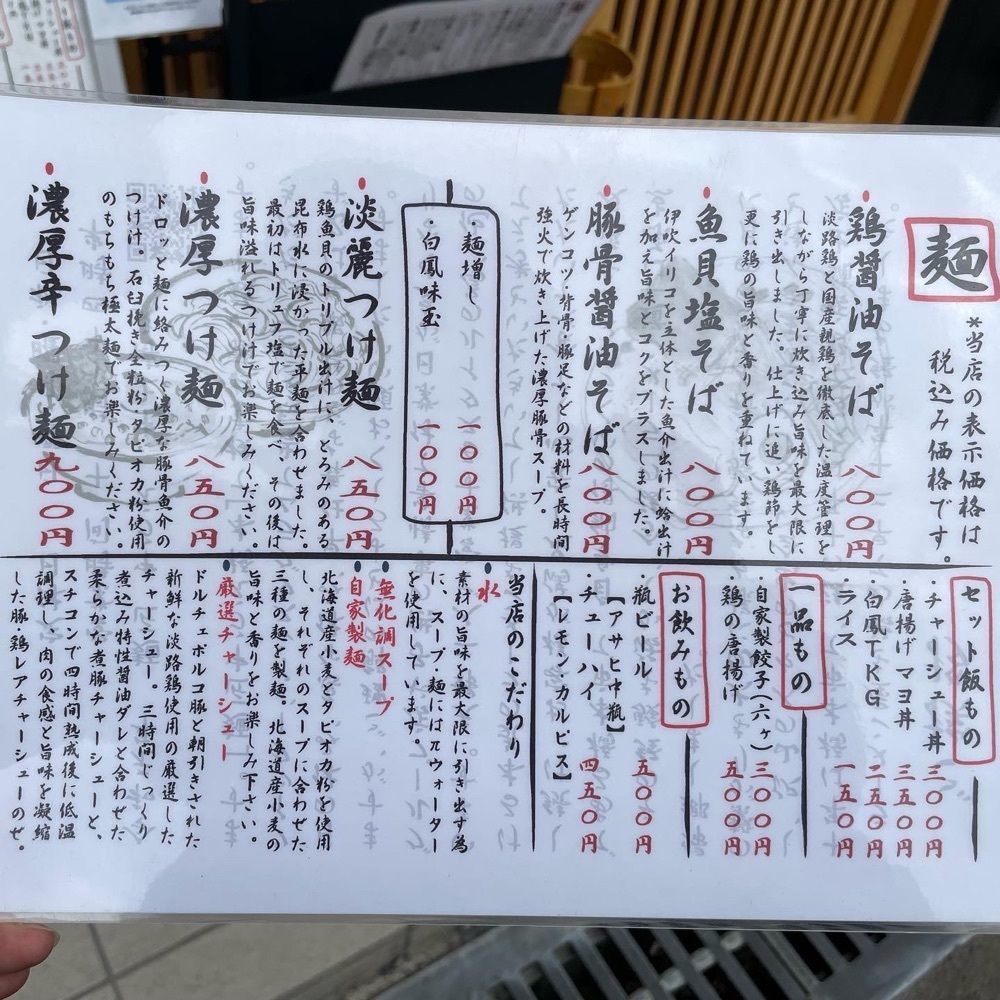 麺
*当店の表示価格は
税込み価格です。
鶏醤油そば 八〇〇円
淡路鶏と国産親鶏を徹底した温度管理を
しながら丁寧に炊き込み旨味を最大限に
引き出しました。仕上げに追い鶏節をし
更に鶏の旨味と香りを重ねています。
魚貝塩そば 八〇〇円
伊吹イリコを主体とした魚介出汁に蛤出汁
を加え旨味とコクをプラスしました。
豚骨醤油そば 八〇〇円
ゲンコツ・背骨・豚足などの材料を長時間
強火で炊き上げた濃厚豚骨スープ。
・麺増し 一〇〇円
・白鳳味玉 一〇〇円
淡麗つけ麺 八五〇円
鶏魚貝のトリプル出汁に、とろみのある
昆布水に浸かった平麺を合わせました。
最初はトリュフ塩で麺を食べ、その後は
旨味溢れるつけ汁でお楽しみください。
濃厚つけ麺 八五〇円
ドロッと麺に絡みつく濃厚な豚骨魚介の
つけ汁。石臼挽き全粒粉・タピオカ粉使用
のもちもち極太麺でお楽しみください。
濃厚辛つけ麺 九〇〇円
セット飯もの
・チャーシュー丼 三〇〇円
・唐揚げマヨ丼 三五〇円
・白鳳TKG 二五〇円
・ライス 一五〇円
一品もの
・自家製餃子(六ヶ) 三〇〇円
・鶏の唐揚げ 五〇〇円
お飲みもの
・瓶ビール 五〇〇円
【アサヒ中瓶】
・チューハイ 四五〇円
【レモン・カルピス】
当店のこだわり
水
素材の旨味を最大限に引き出す為
に、スープ・麺にはπウォーター
を使用しています。
無化調スープ
自家製麺
北海道産小麦とタピオカ粉を使用
し、それぞれのスープに合わせた
三種の麺を製麺。北海道産小麦の
旨味と香りをお楽しみ下さい。
厳選チャーシュー
ドルチェポルコ豚と朝引きされた
新鮮な淡路鶏使用の厳選した
チャーシュー。三時間じっくり
煮込み特性醤油ダレと合わせた
柔らかな煮豚チャーシューと、
スチコンで四時間熟成後に低温
調理し、肉の食感と旨味を凝縮
した豚鶏レアチャーシューのせ。